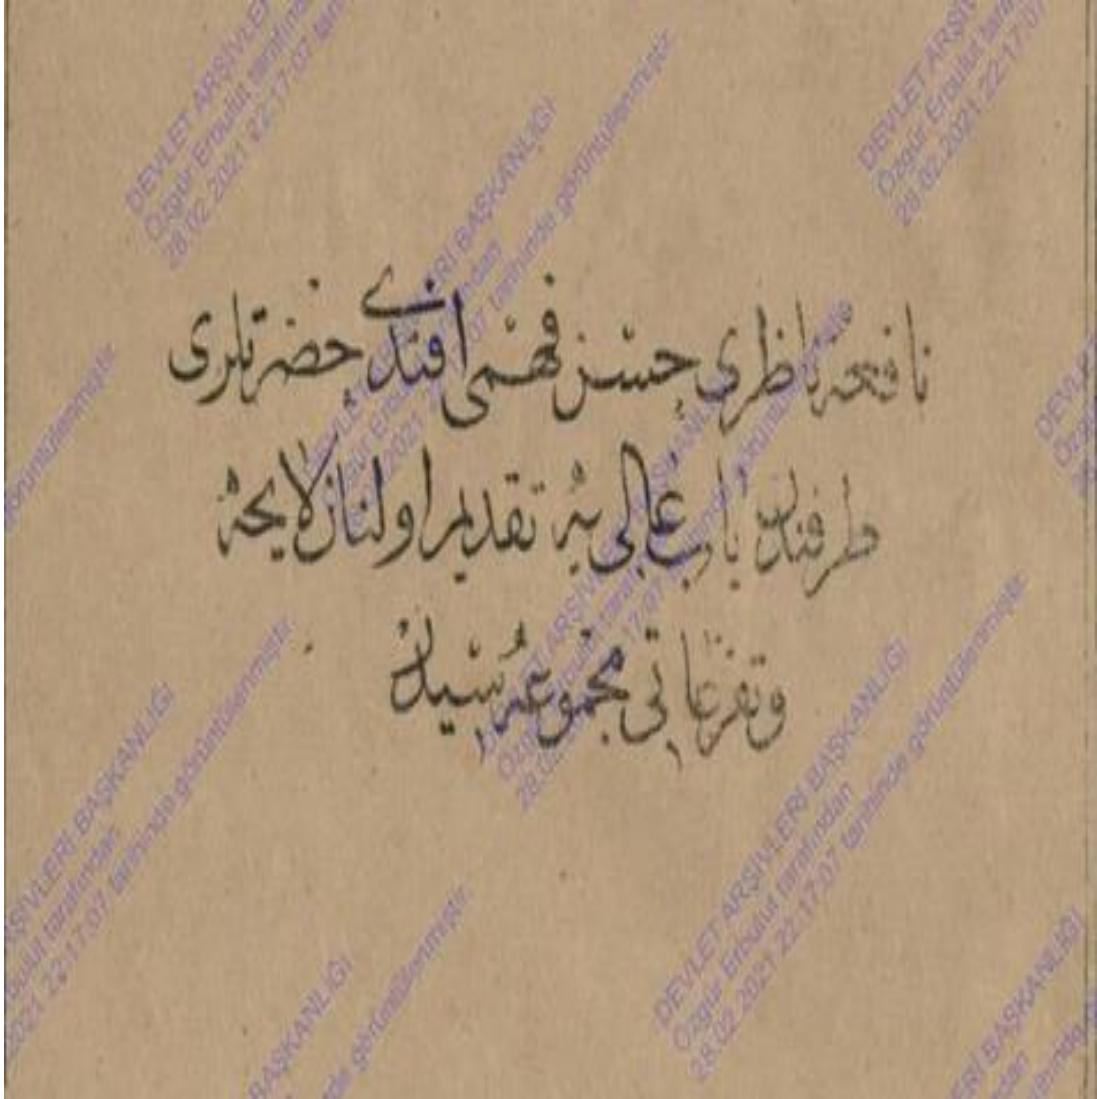 نافعه ناظری حسن فهمی افندی حضرتلری
طرفندن باب عالی یه تقدیم اولنان لایحه
و تفرعاتی مجموعه سیدر
DEVLET ARŞİVLERİ BAŞKANLIĞI
Özgür Erbulut tarafından
28.02.2021 22:17:07 tarihinde görüntülenmiştir.